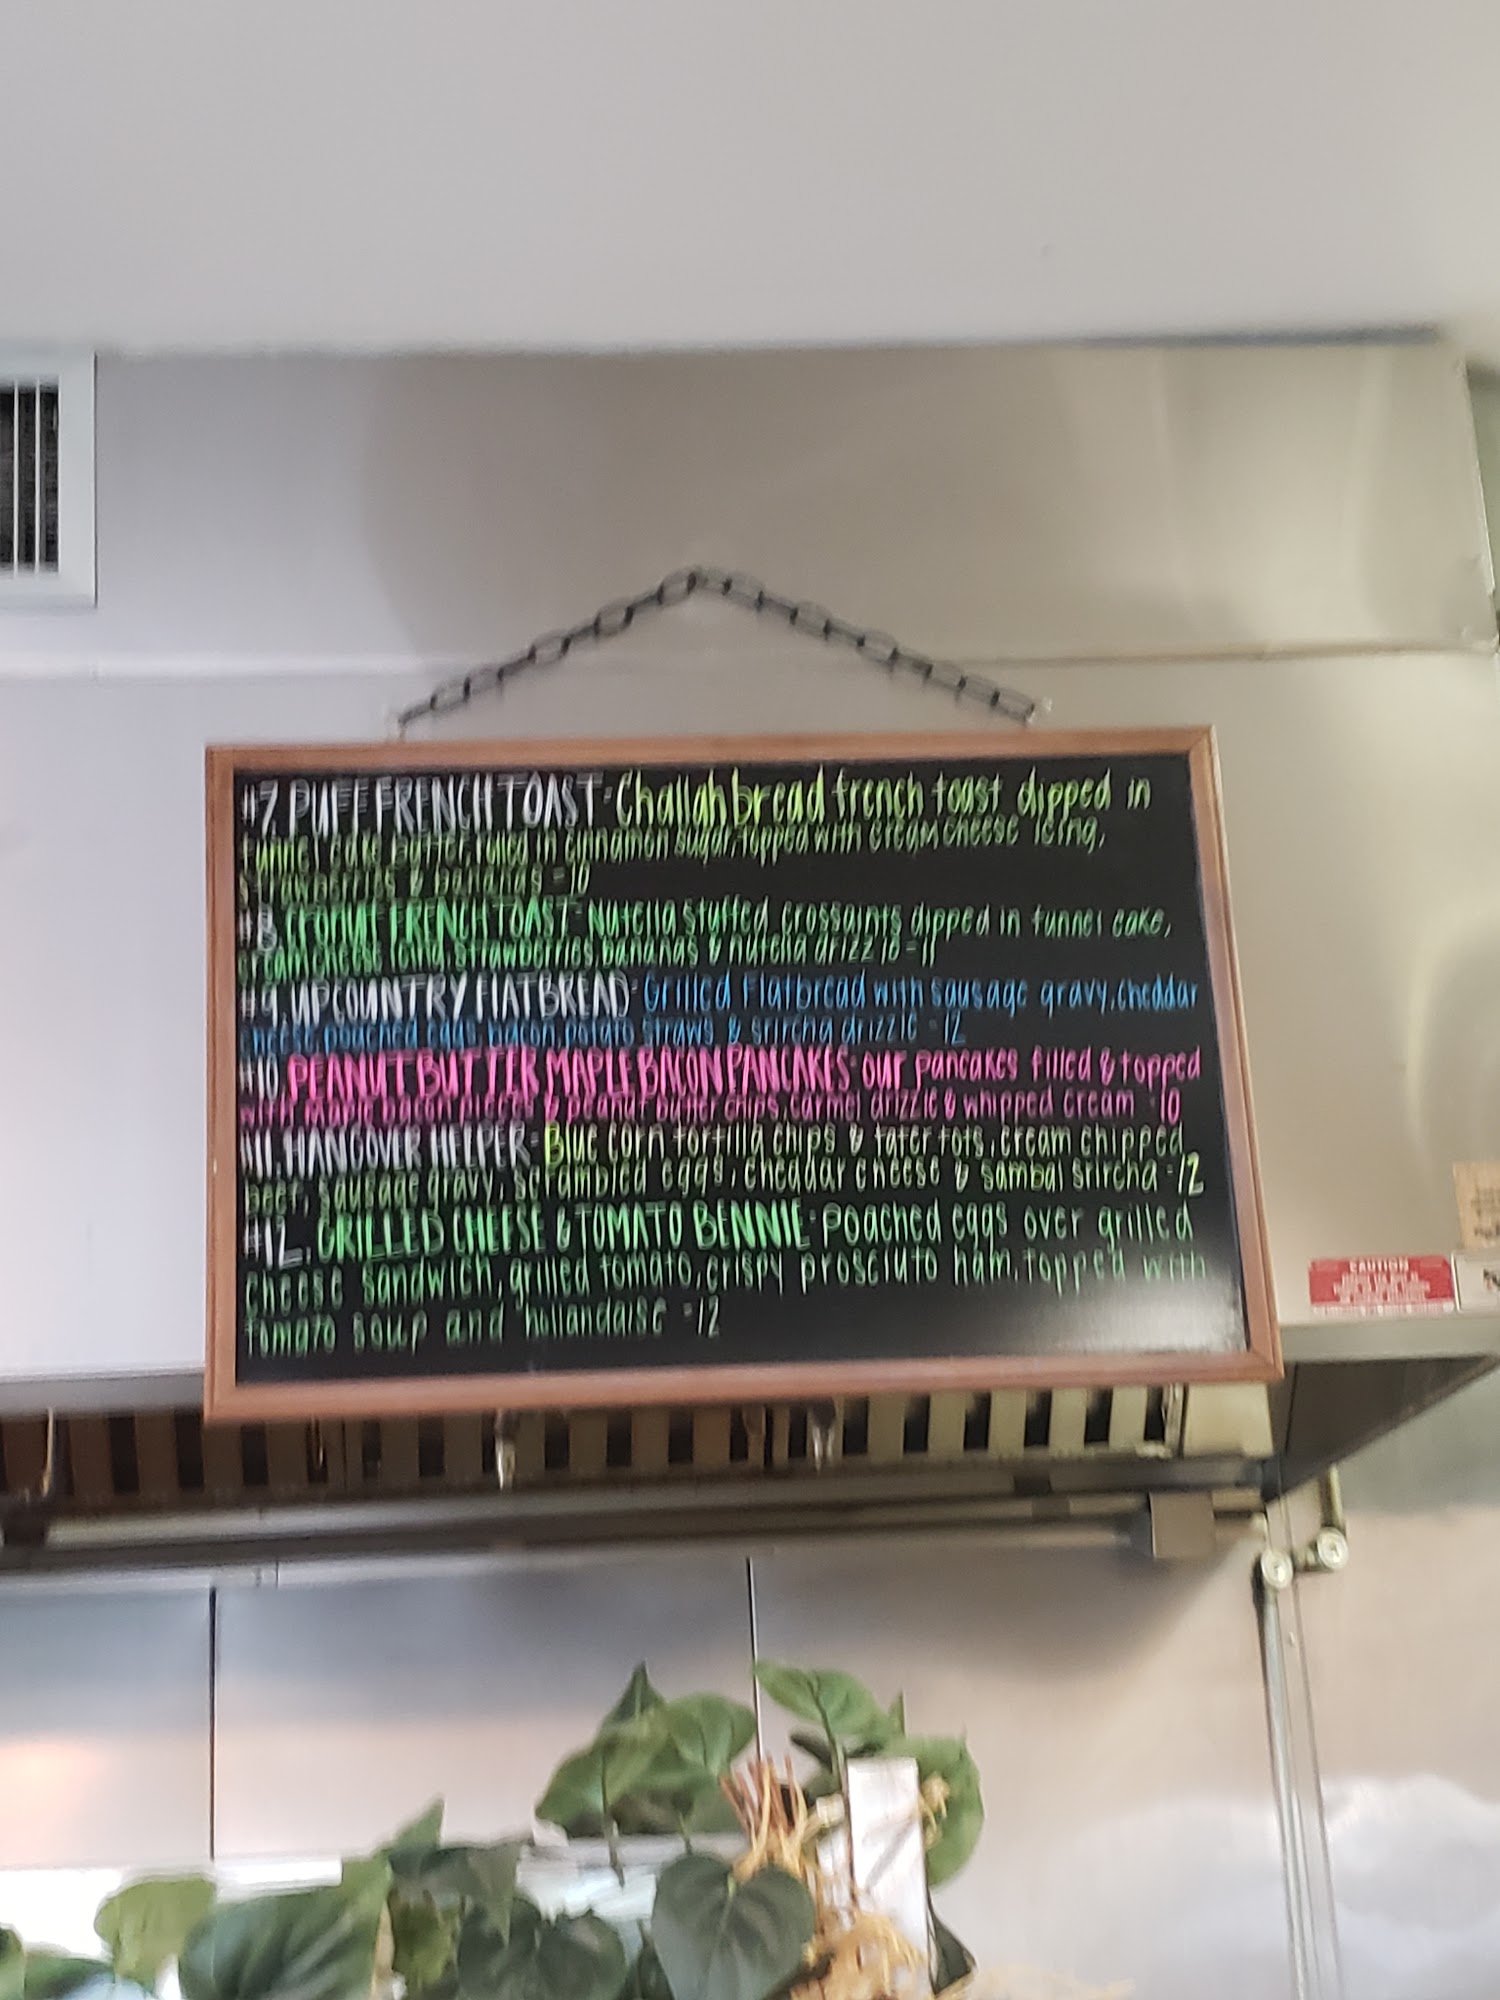 #7. PUFF FRENCH TOAST- Challah bread french toast dipped in
funnel cake batter, rolled in cinnamon sugar, topped with cream cheese icing,
strawberries & bananas -10
#8. CRONUT FRENCH TOAST- Nutella stuffed crossaints dipped in funnel cake,
cream cheese icing, strawberries bananas & nutella drizzle -11
#9. UPCOUNTRY FLATBREAD- Grilled Flatbread with sausage gravy, cheddar
cheese, poached eggs, bacon, potato straws & srircha drizzle -12
#10. PEANUT BUTTER MAPLE BACON PANCAKES- our pancakes filled & topped
with maple bacon pieces & peanut butter chips, carmel drizzle & whipped cream -10
#11. HANGOVER HELPER- Blue corn tortilla chips & tater tots, cream chipped
beef, sausage gravy, scrambled eggs, cheddar cheese & sambal srircha -12
#12. GRILLED CHEESE & TOMATO BENNIE- Poached eggs over grilled
cheese sandwich, grilled tomato, crispy prosciuto ham, topped with
tomato soup and hollandaise -12
CAUTION